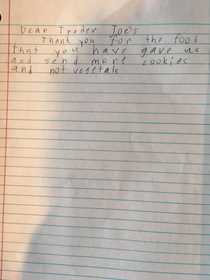 Dear Trader Joe's
Thank you for the food
that you have gave us
and send more cookies
and not vegetals